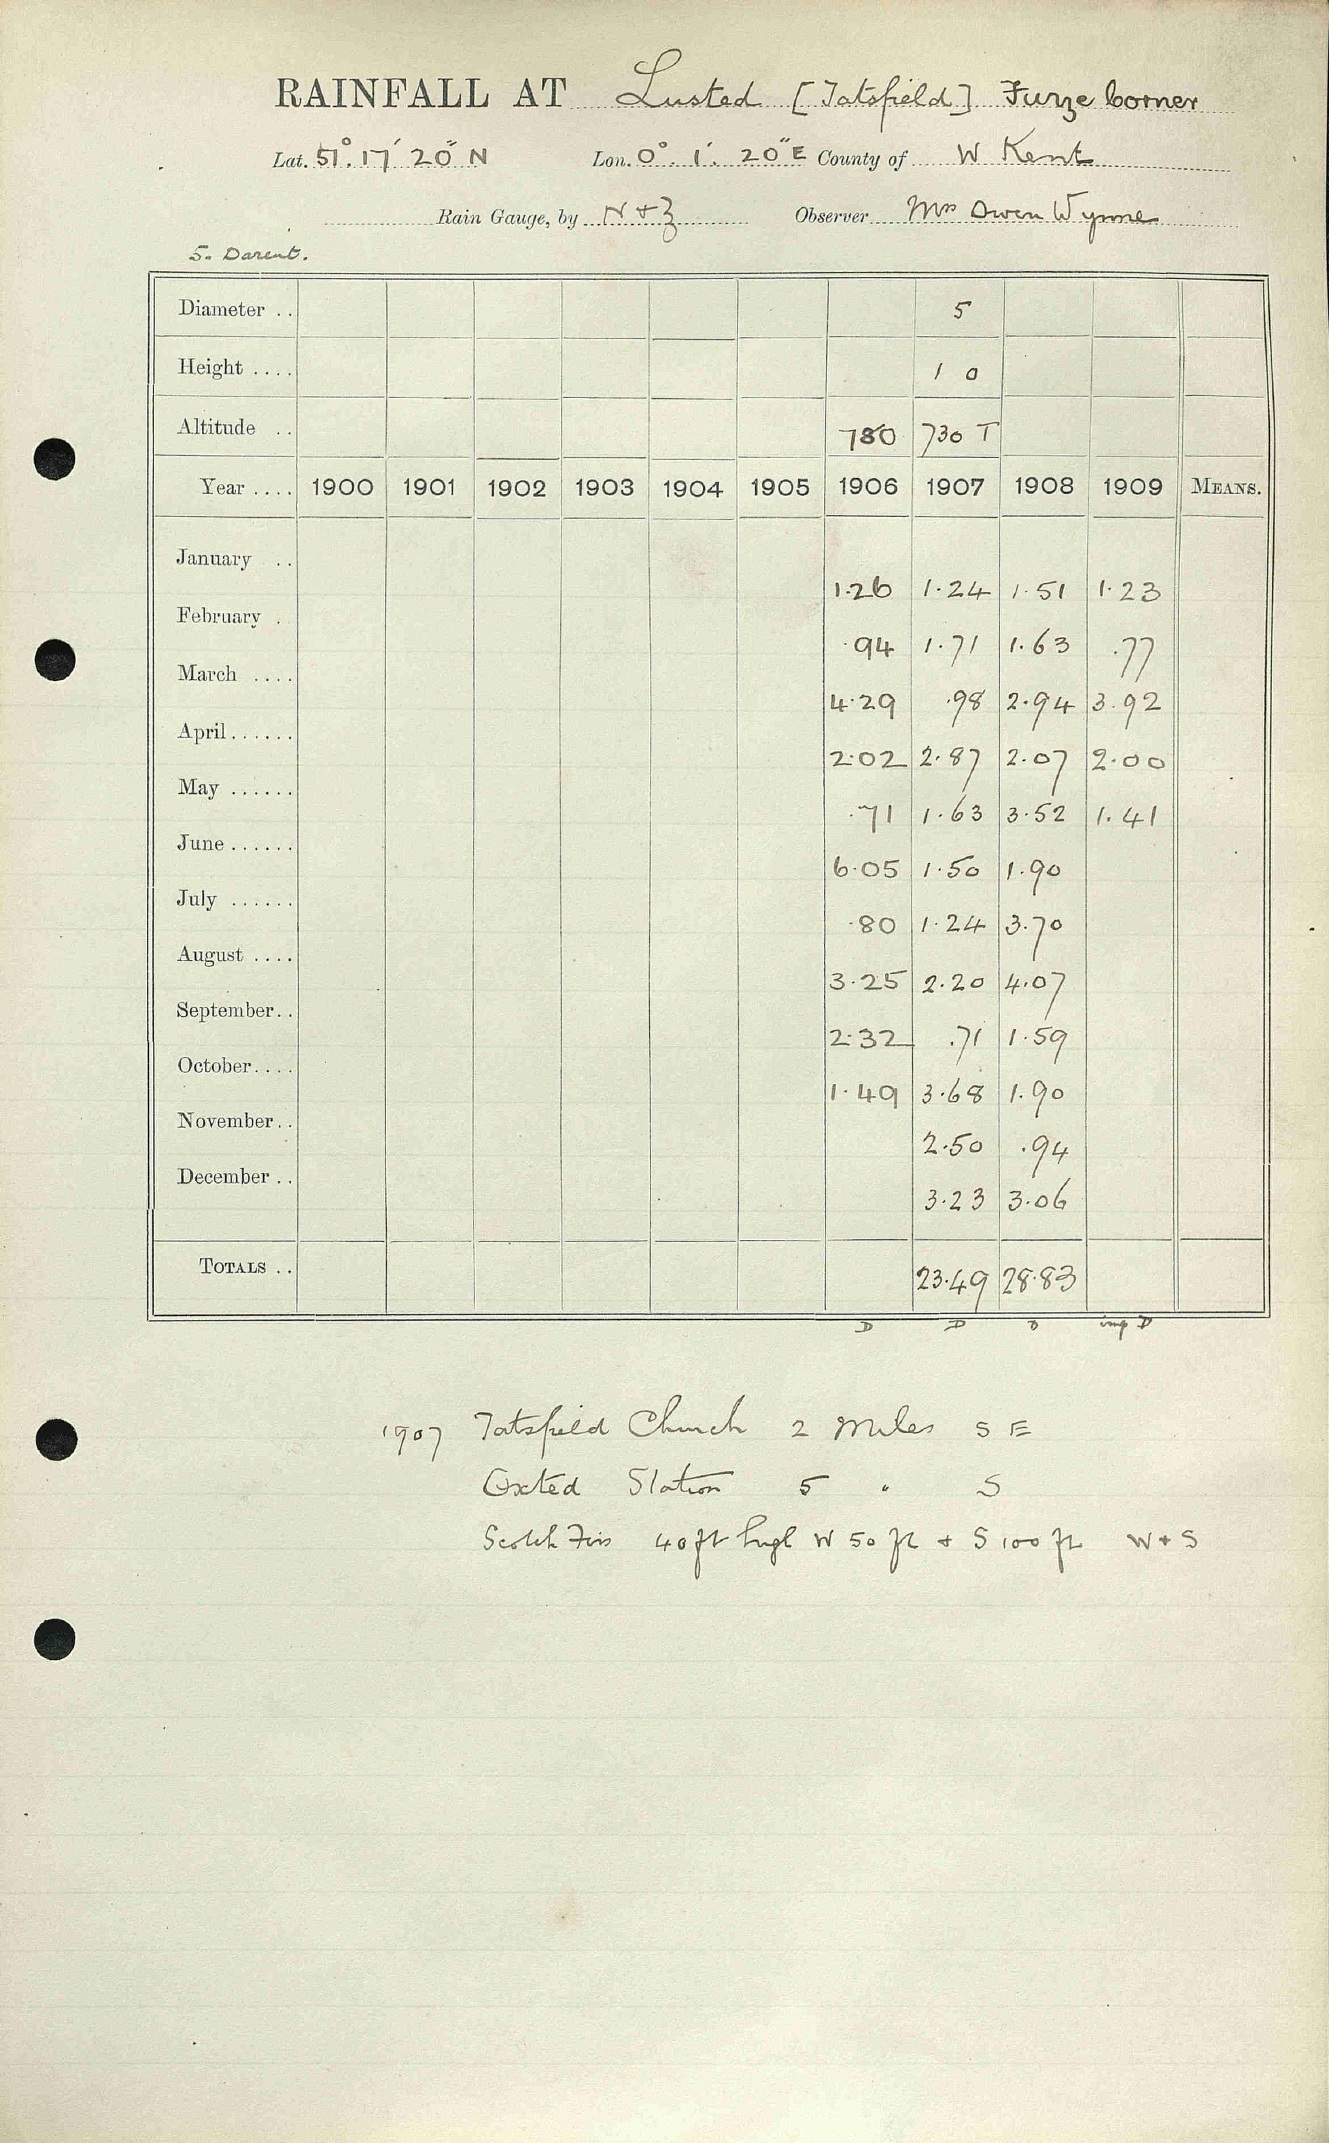 RAINFALL AT Lusted [Tatsfield] Furze Corner
Lat. 51° 17' 20" N Lon. 0° 1' 20" E County of W Kent
Rain Gauge, by N + Z Observer Mrs Owen Wynne
5. Darent.
Diameter .. 5
Height .... 1 0
Altitude .. 780 730 T
Year .... 1900 1901 1902 1903 1904 1905 1906 1907 1908 1909 MEANS.
January .. 1.26 1.24 1.51 1.23
February . .94 1.71 1.63 .77
March .... 4.29 .98 2.94 3.92
April...... 2.02 2.87 2.07 2.00
May ...... .71 1.63 3.52 1.41
June...... 6.05 1.50 1.90
July ...... .80 1.24 3.70
August .... 3.25 2.20 4.07
September.. 2.32 .71 1.59
October.... 1.49 3.68 1.90
November.. 2.50 .94
December .. 3.23 3.06
TOTALS .. 23.49 28.83
D D D imp D
1907 Tatsfield Church 2 Miles S E
Oxted Station 5 " S
Scotch Firs 40 ft high W 50 ft + S 100 ft W + S